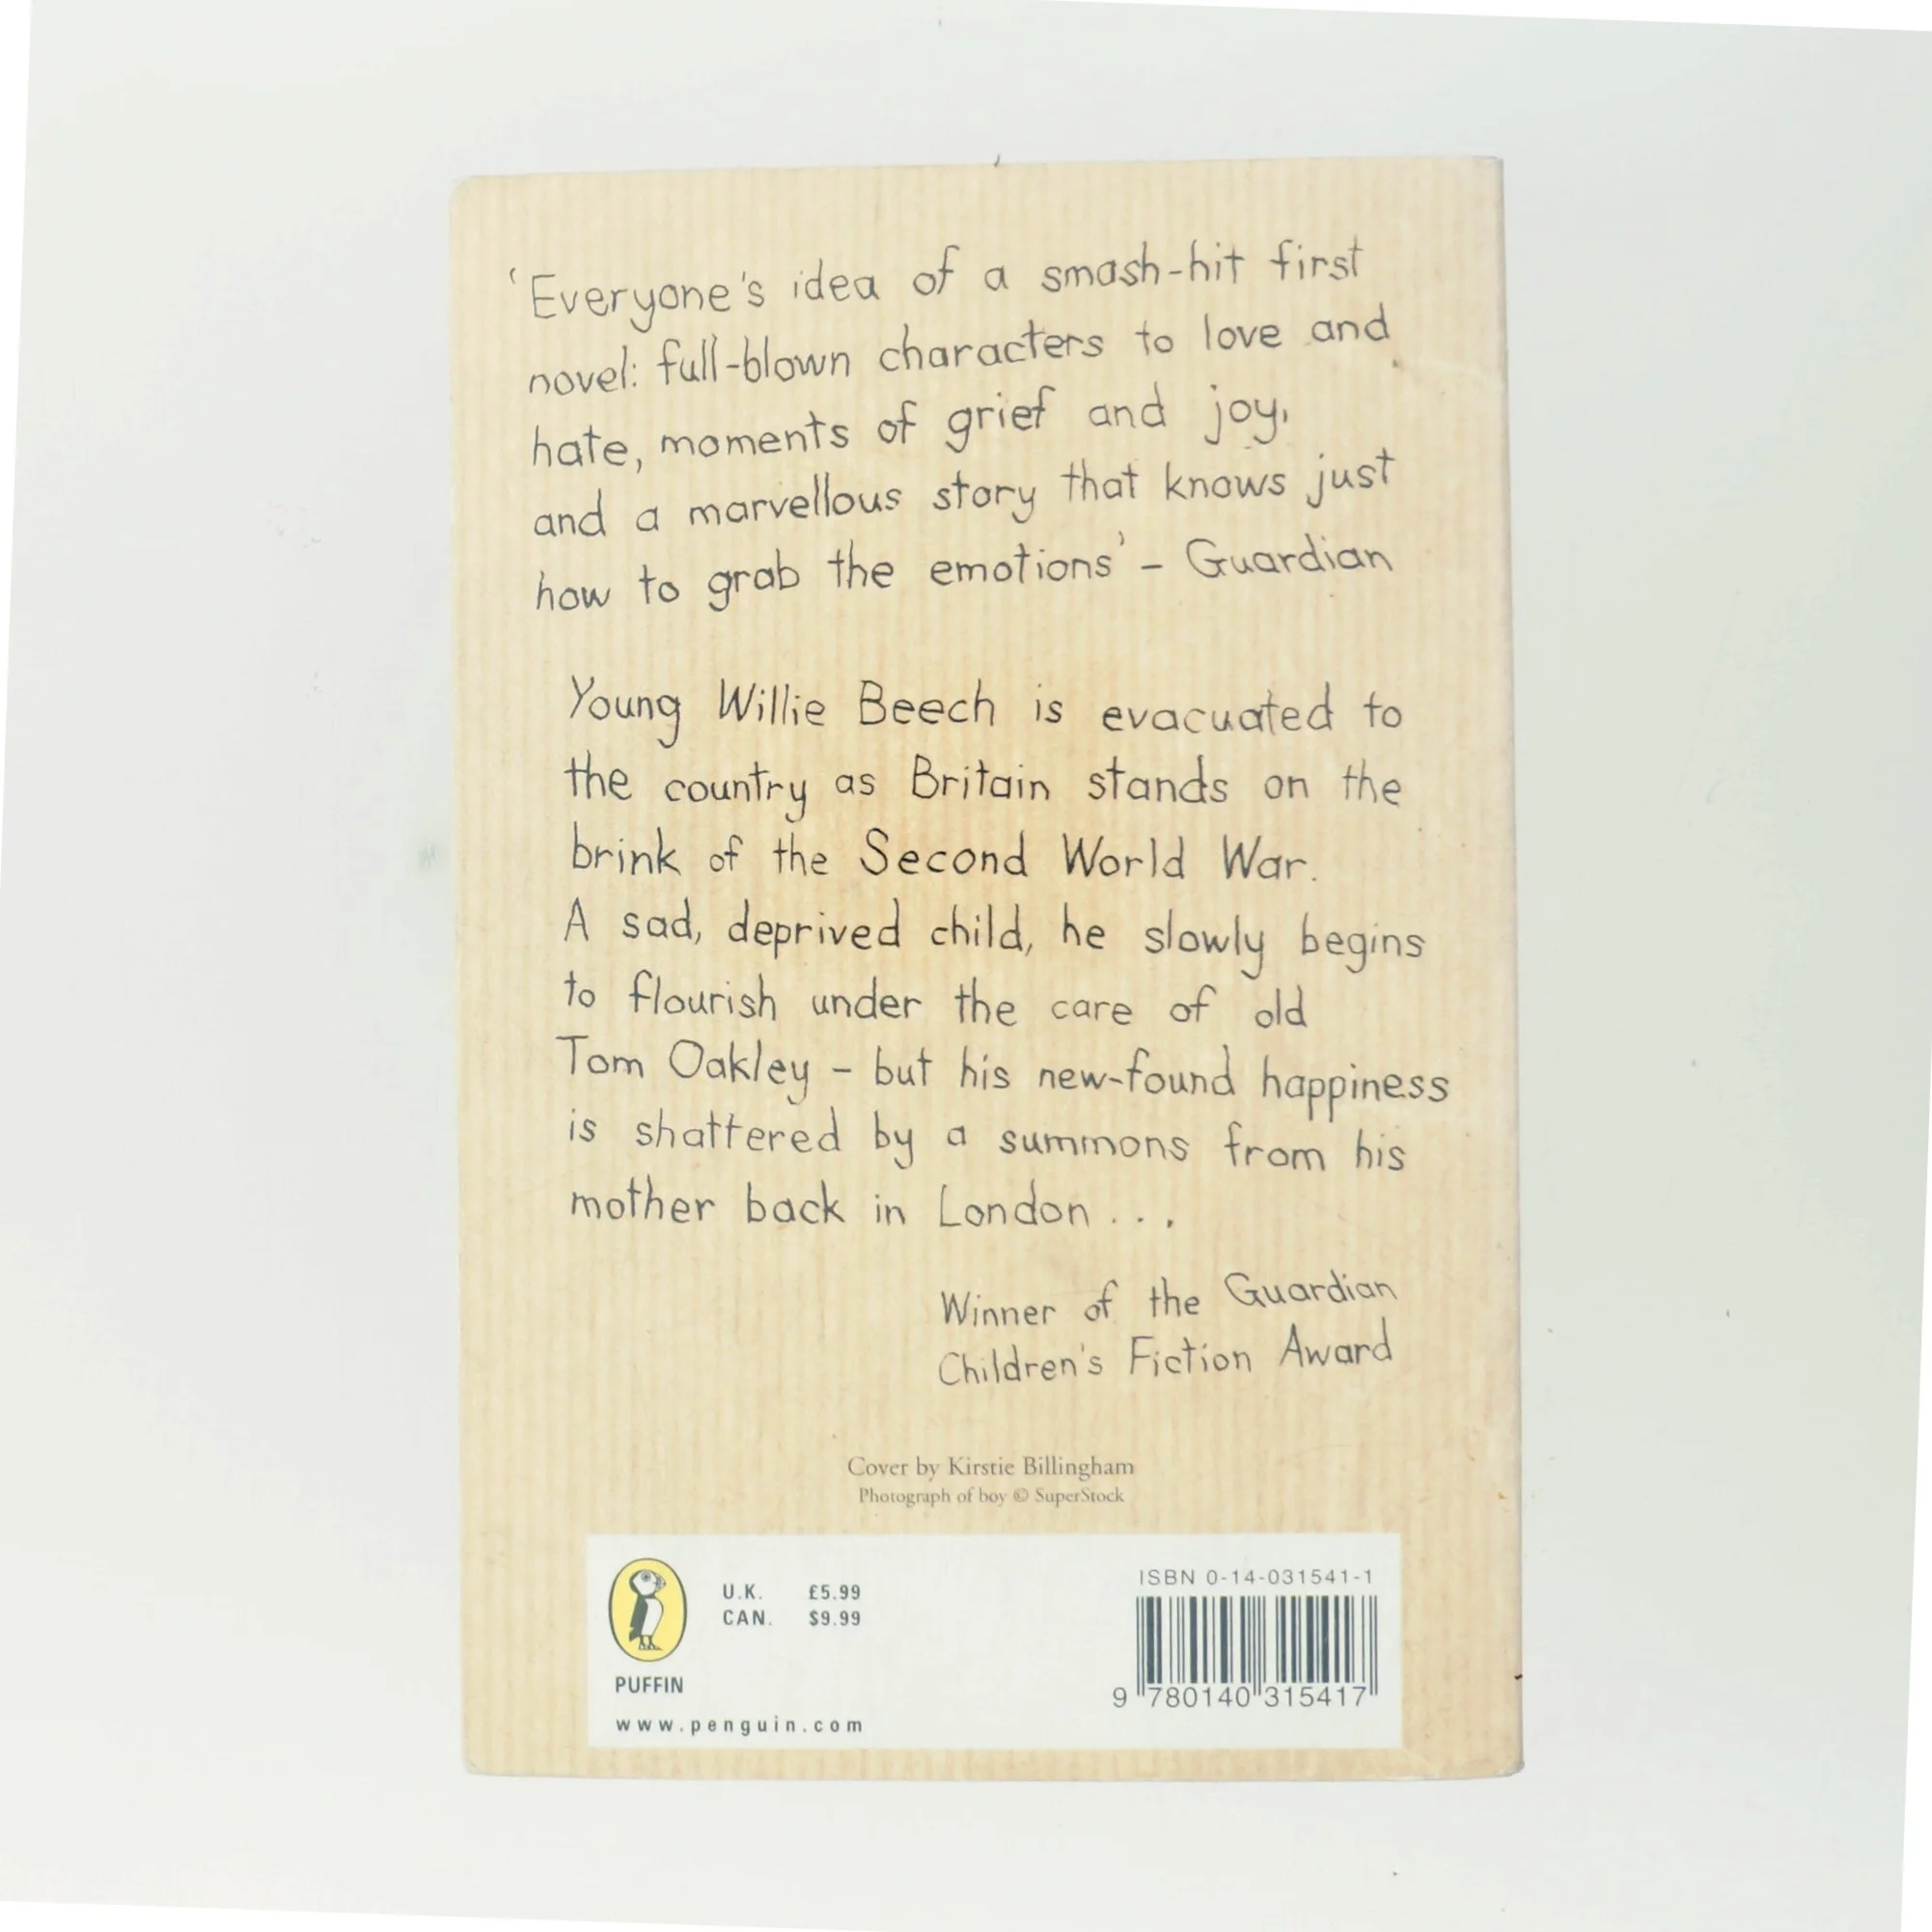 ‘Everyone's idea of a smash-hit first
novel: full-blown characters to love and
hate, moments of grief and joy,
and a marvellous story that knows just
how to grab the emotions’ – Guardian
Young Willie Beech is evacuated to
the country as Britain stands on the
brink of the Second World War.
A sad, deprived child, he slowly begins
to flourish under the care of old
Tom Oakley – but his new-found happiness
is shattered by a summons from his
mother back in London . . .
Winner of the Guardian
Children's Fiction Award
Cover by Kirstie Billingham
Photograph of boy © SuperStock
U.K. £5.99
CAN. $9.99
PUFFIN
www.penguin.com
ISBN 0-14-031541-1
9 780140 315417